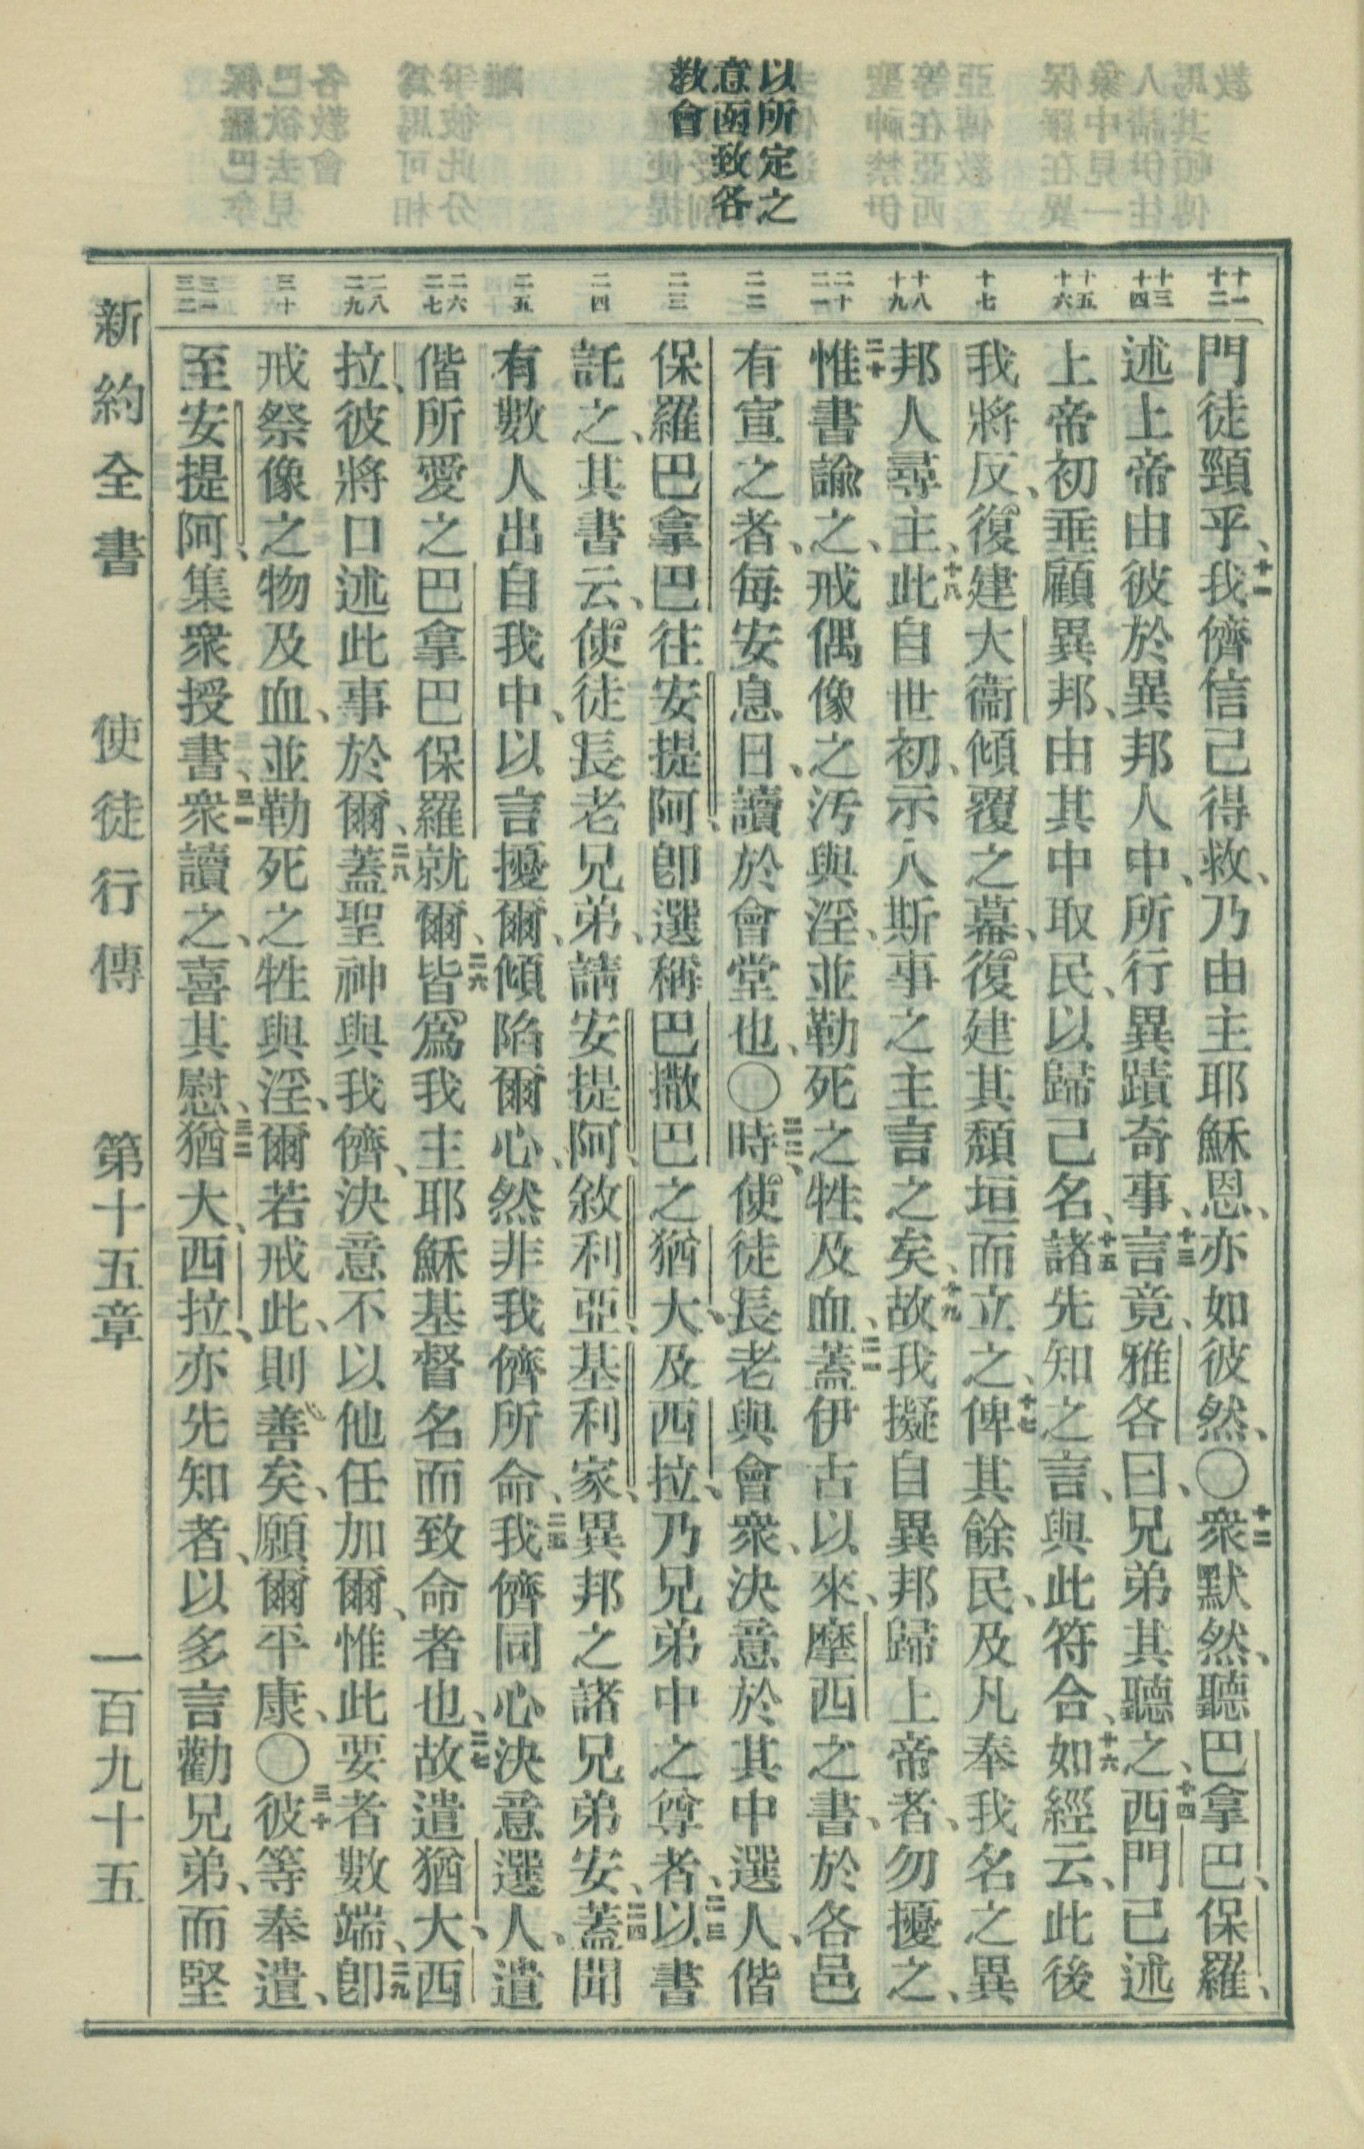 以所定之
意函致各
教會
十一 十二
十三 十四
十五 十六
十七
十八 十九
二十 二一
二二
二三
二四
二五
二六 二七
二八 二九
三十
三一 三二
門徒頸乎、十一我儕信己得救、乃由主耶穌恩、亦如彼然、〇十二衆默然、聽巴拿巴、保羅、
述上帝由彼於異邦人中、所行異蹟奇事、十三言竟、雅各曰、兄弟其聽之、十四西門已述
上帝初垂顧異邦、由其中取民、以歸己名、十五諸先知之言、與此符合、十六如經云、此後
我將反、復建大衞傾覆之幕、復建其頽垣而立之、十七俾其餘民、及凡奉我名之異
邦人尋主、十八此自世初、示人斯事之主言之矣、十九故我擬自異邦歸上帝者、勿擾之、
二十惟書諭之、戒偶像之汚與淫、並勒死之牲及血、二一蓋伊古以來、摩西之書、於各邑
有宣之者、每安息日、讀於會堂也、〇二二時、使徒長老與會衆、決意於其中選人、偕
保羅巴拿巴往安提阿、卽選稱巴撒巴之猶大、及西拉、乃兄弟中之尊者、二三以書
託之、其書云、使徒長老兄弟、請安提阿、敘利亞、基利家、異邦之諸兄弟安、二四蓋聞
有數人出自我中、以言擾爾、傾陷爾心、然非我儕所命、二五我儕同心決意選人、遣
偕所愛之巴拿巴保羅就爾、二六皆爲我主耶穌基督名而致命者也、二七故遣猶大、西
拉、彼將口述此事於爾、二八蓋聖神與我儕、決意不以他任加爾、惟此要者數端、二九卽
戒祭像之物及血、並勒死之牲與淫、爾若戒此、則善矣、願爾平康、〇三十彼等奉遣、
至安提阿、集衆授書、三一衆讀之、喜其慰、三二猶大、西拉、亦先知者、以多言勸兄弟、而堅
新約全書 使徒行傳 第十五章 一百九十五